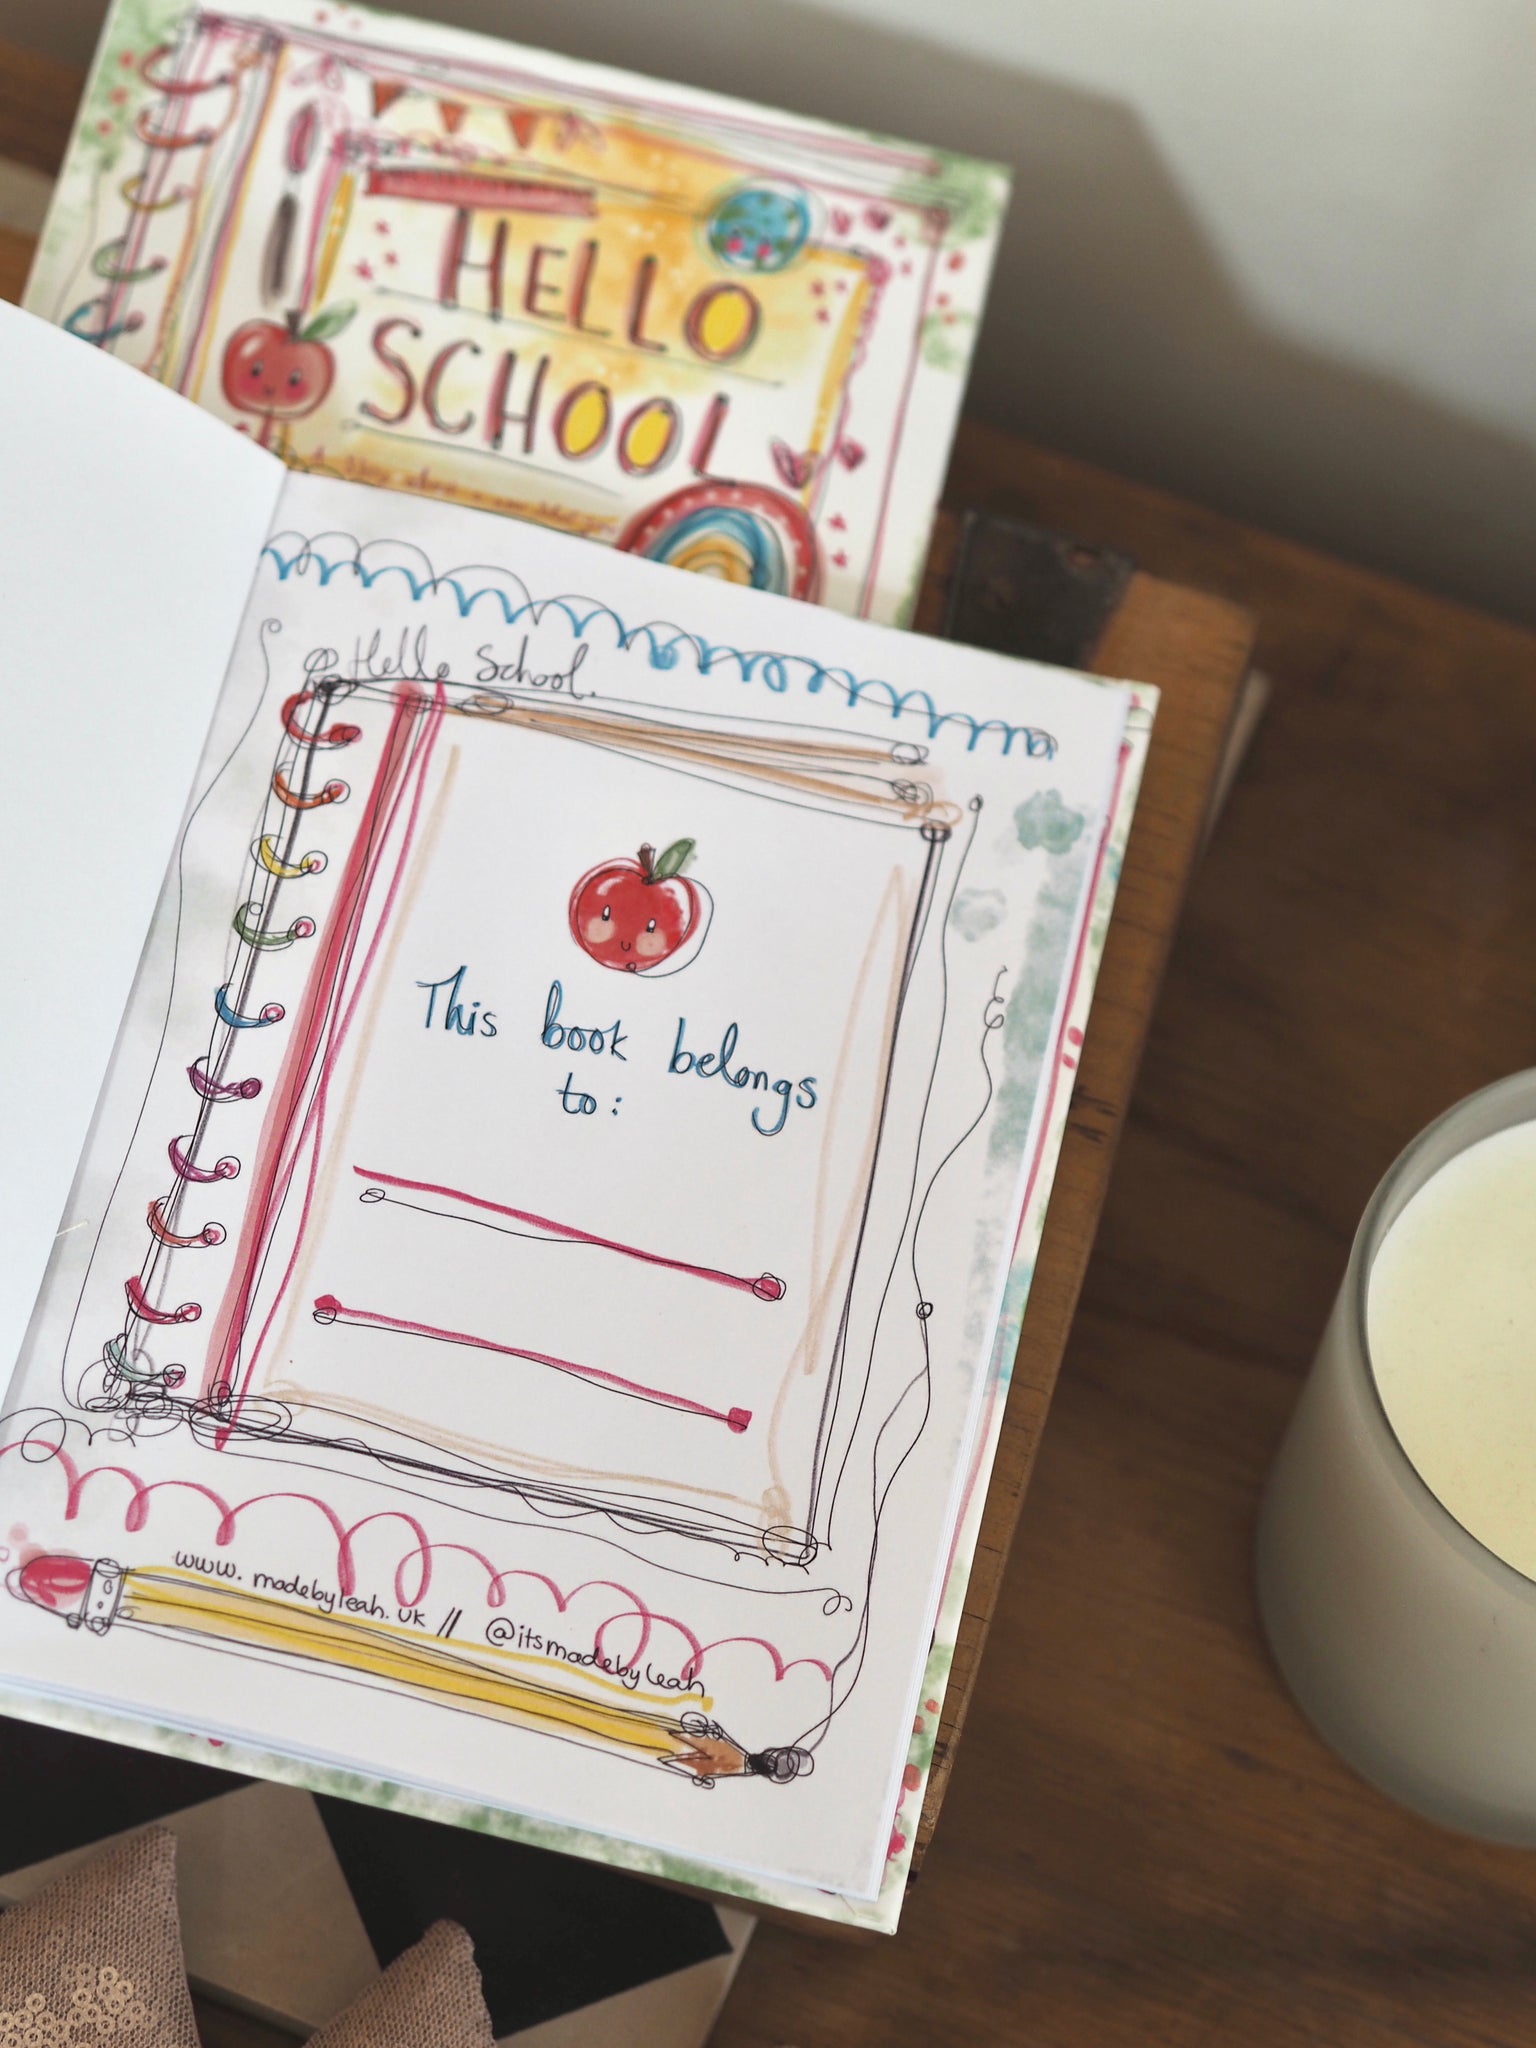 HELLO
SCHOOL
Hello School.
This book belongs
to:
www.madebyleah.uk // @itsmadebyleah